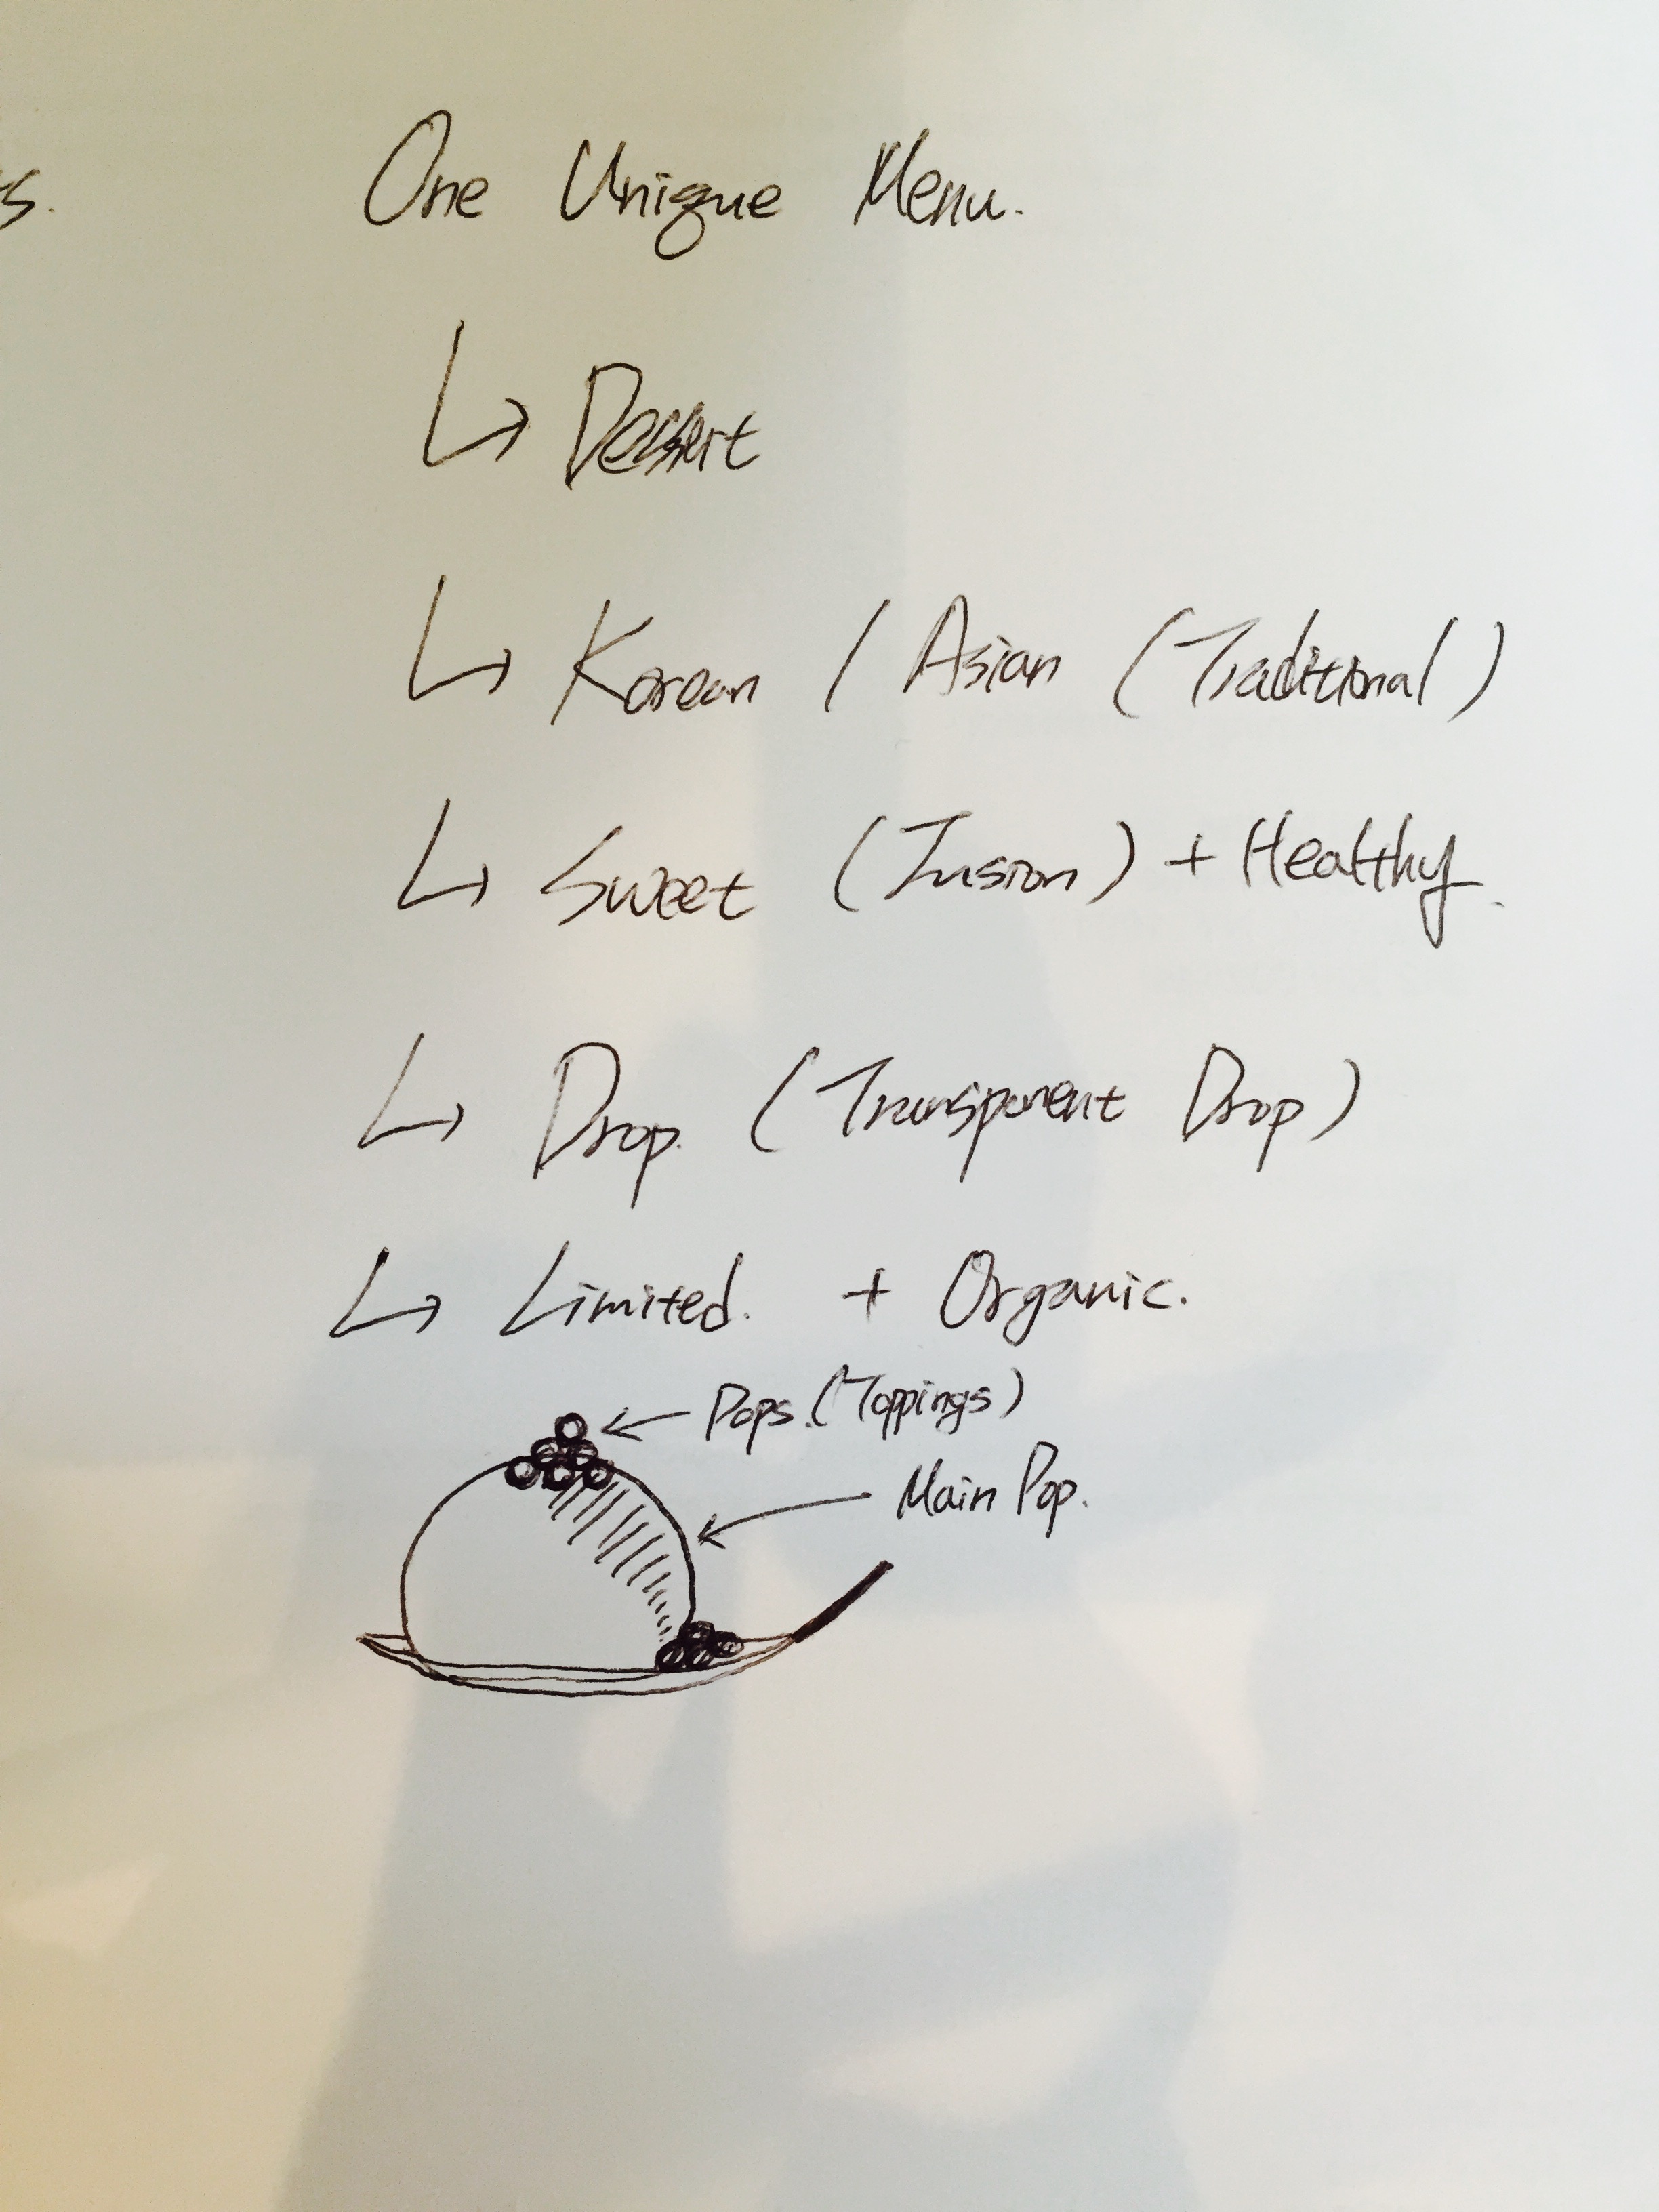 s.
One Unique Menu.
↳ Dessert
↳ Korean / Asian (Traditional)
↳ Sweet (Fusion) + Healthy.
↳ Drop. (Transparent Drop)
↳ Limited. + Organic.
Pops. (Toppings)
Main Pop.